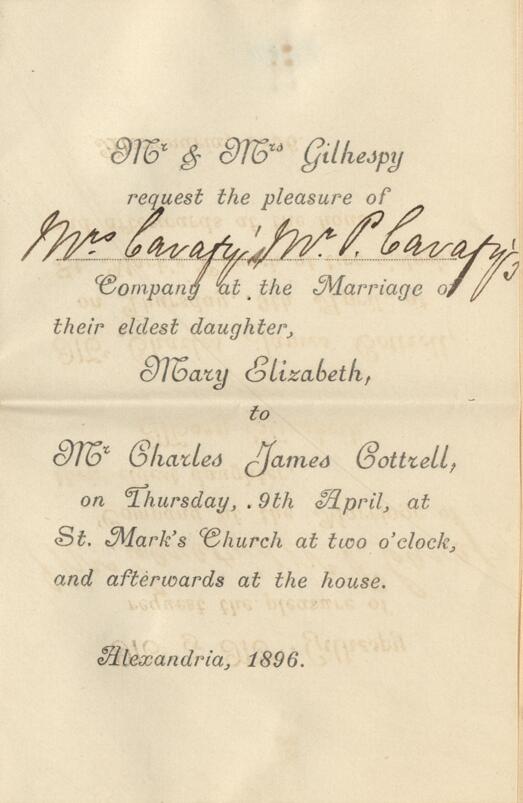 Mr & Mrs Gilhespy
request the pleasure of
Mrs Cavafy's, Mr. P. Cavafy's
Company at the Marriage of
their eldest daughter,
Mary Elizabeth,
to
Mr Charles James Cottrell,
on Thursday, 9th April, at
St. Mark's Church at two o'clock,
and afterwards at the house.
Alexandria, 1896.